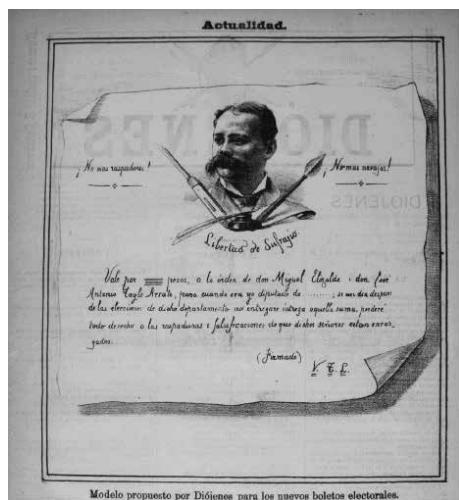 Actualidad.
¡No mas raspadores!
¡No mas navajas!
Libertad de Sufragio
Vale por pesos, a la órden de don Miguel Elizalde i don José
Antonio Tagle Arrate, para cuando sea yo diputado de ........; si un dia despues
de las elecciones de dicho departamento no entregare integra aquella suma, perderé
todo derecho a las raspaduras i falsificaciones de que dichos señores estan encar-
gados.
(Firmado)
V. E. L.
Modelo propuesto por Diójenes para los nuevos boletos electorales.